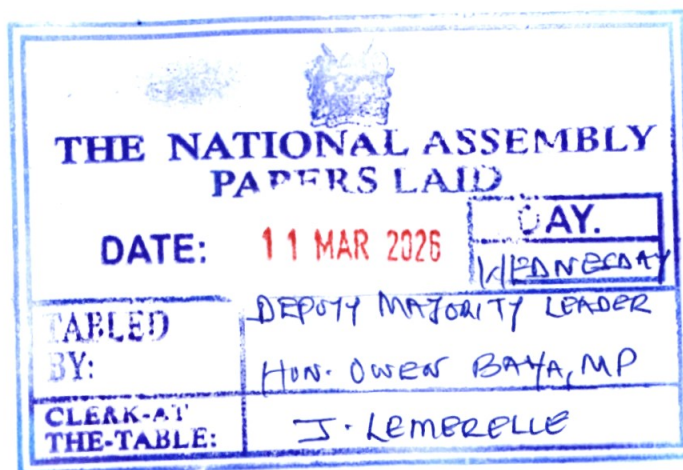 THE NATIONAL ASSEMBLY
PAPERS LAID
DATE: 11 MAR 2026
DAY.
WEDNESDAY
TABLED BY:
DEPUTY MAJORITY LEADER
HON. OWEN BAYA, MP
CLERK-AT THE-TABLE:
J. LEMERELLE